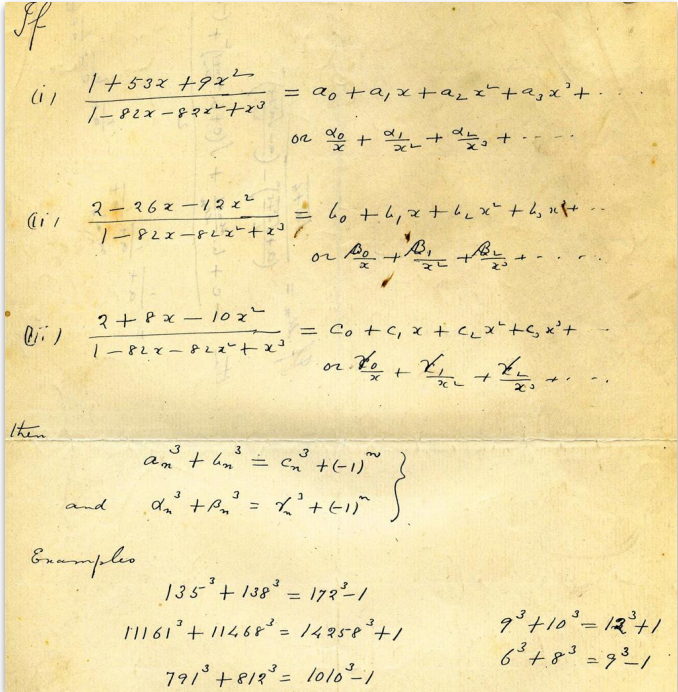 If
(i) (1 + 53x + 9x²)/(1 − 82x − 82x² + x³) = a₀ + a₁x + a₂x² + a₃x³ + ....
or α₀/x + α₁/x² + α₂/x³ + ....
(ii) (2 − 26x − 12x²)/(1 − 82x − 82x² + x³) = b₀ + b₁x + b₂x² + b₃x³ + ...
or β₀/x + β₁/x² + β₂/x³ + ....
(iii) (2 + 8x − 10x²)/(1 − 82x − 82x² + x³) = c₀ + c₁x + c₂x² + c₃x³ + ...
or γ₀/x + γ₁/x² + γ₂/x³ + ....
then
aₙ³ + bₙ³ = cₙ³ + (−1)ⁿ }
and αₙ³ + βₙ³ = γₙ³ + (−1)ⁿ
Examples
135³ + 138³ = 172³ − 1
11161³ + 11468³ = 14258³ + 1
791³ + 812³ = 1010³ − 1
9³ + 10³ = 12³ + 1
6³ + 8³ = 9³ − 1